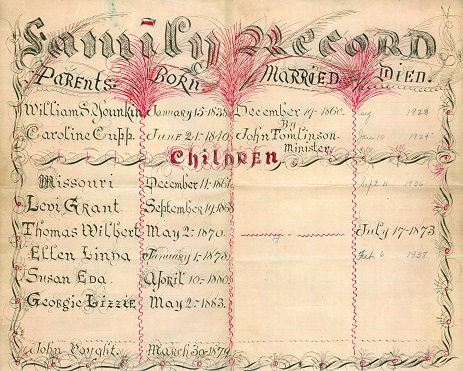 Family Record
Parents: Born. Married. Died.
William S. Younkin January 15-1838 December 19-1860. 1928
Caroline Cupp. June 21-1840. By John Tomlinson. Minister.
Children
Missouri December 11-1861
Levi Grant September 19-1868 1936
Thomas Wilbert May 2-1870. July 17-1873
Ellen Linna January 1-1878. Feb 6 1938
Susan Eda April 10-1880
Georgie Lizzie May 2-1883.
John Vought. March 30-1879